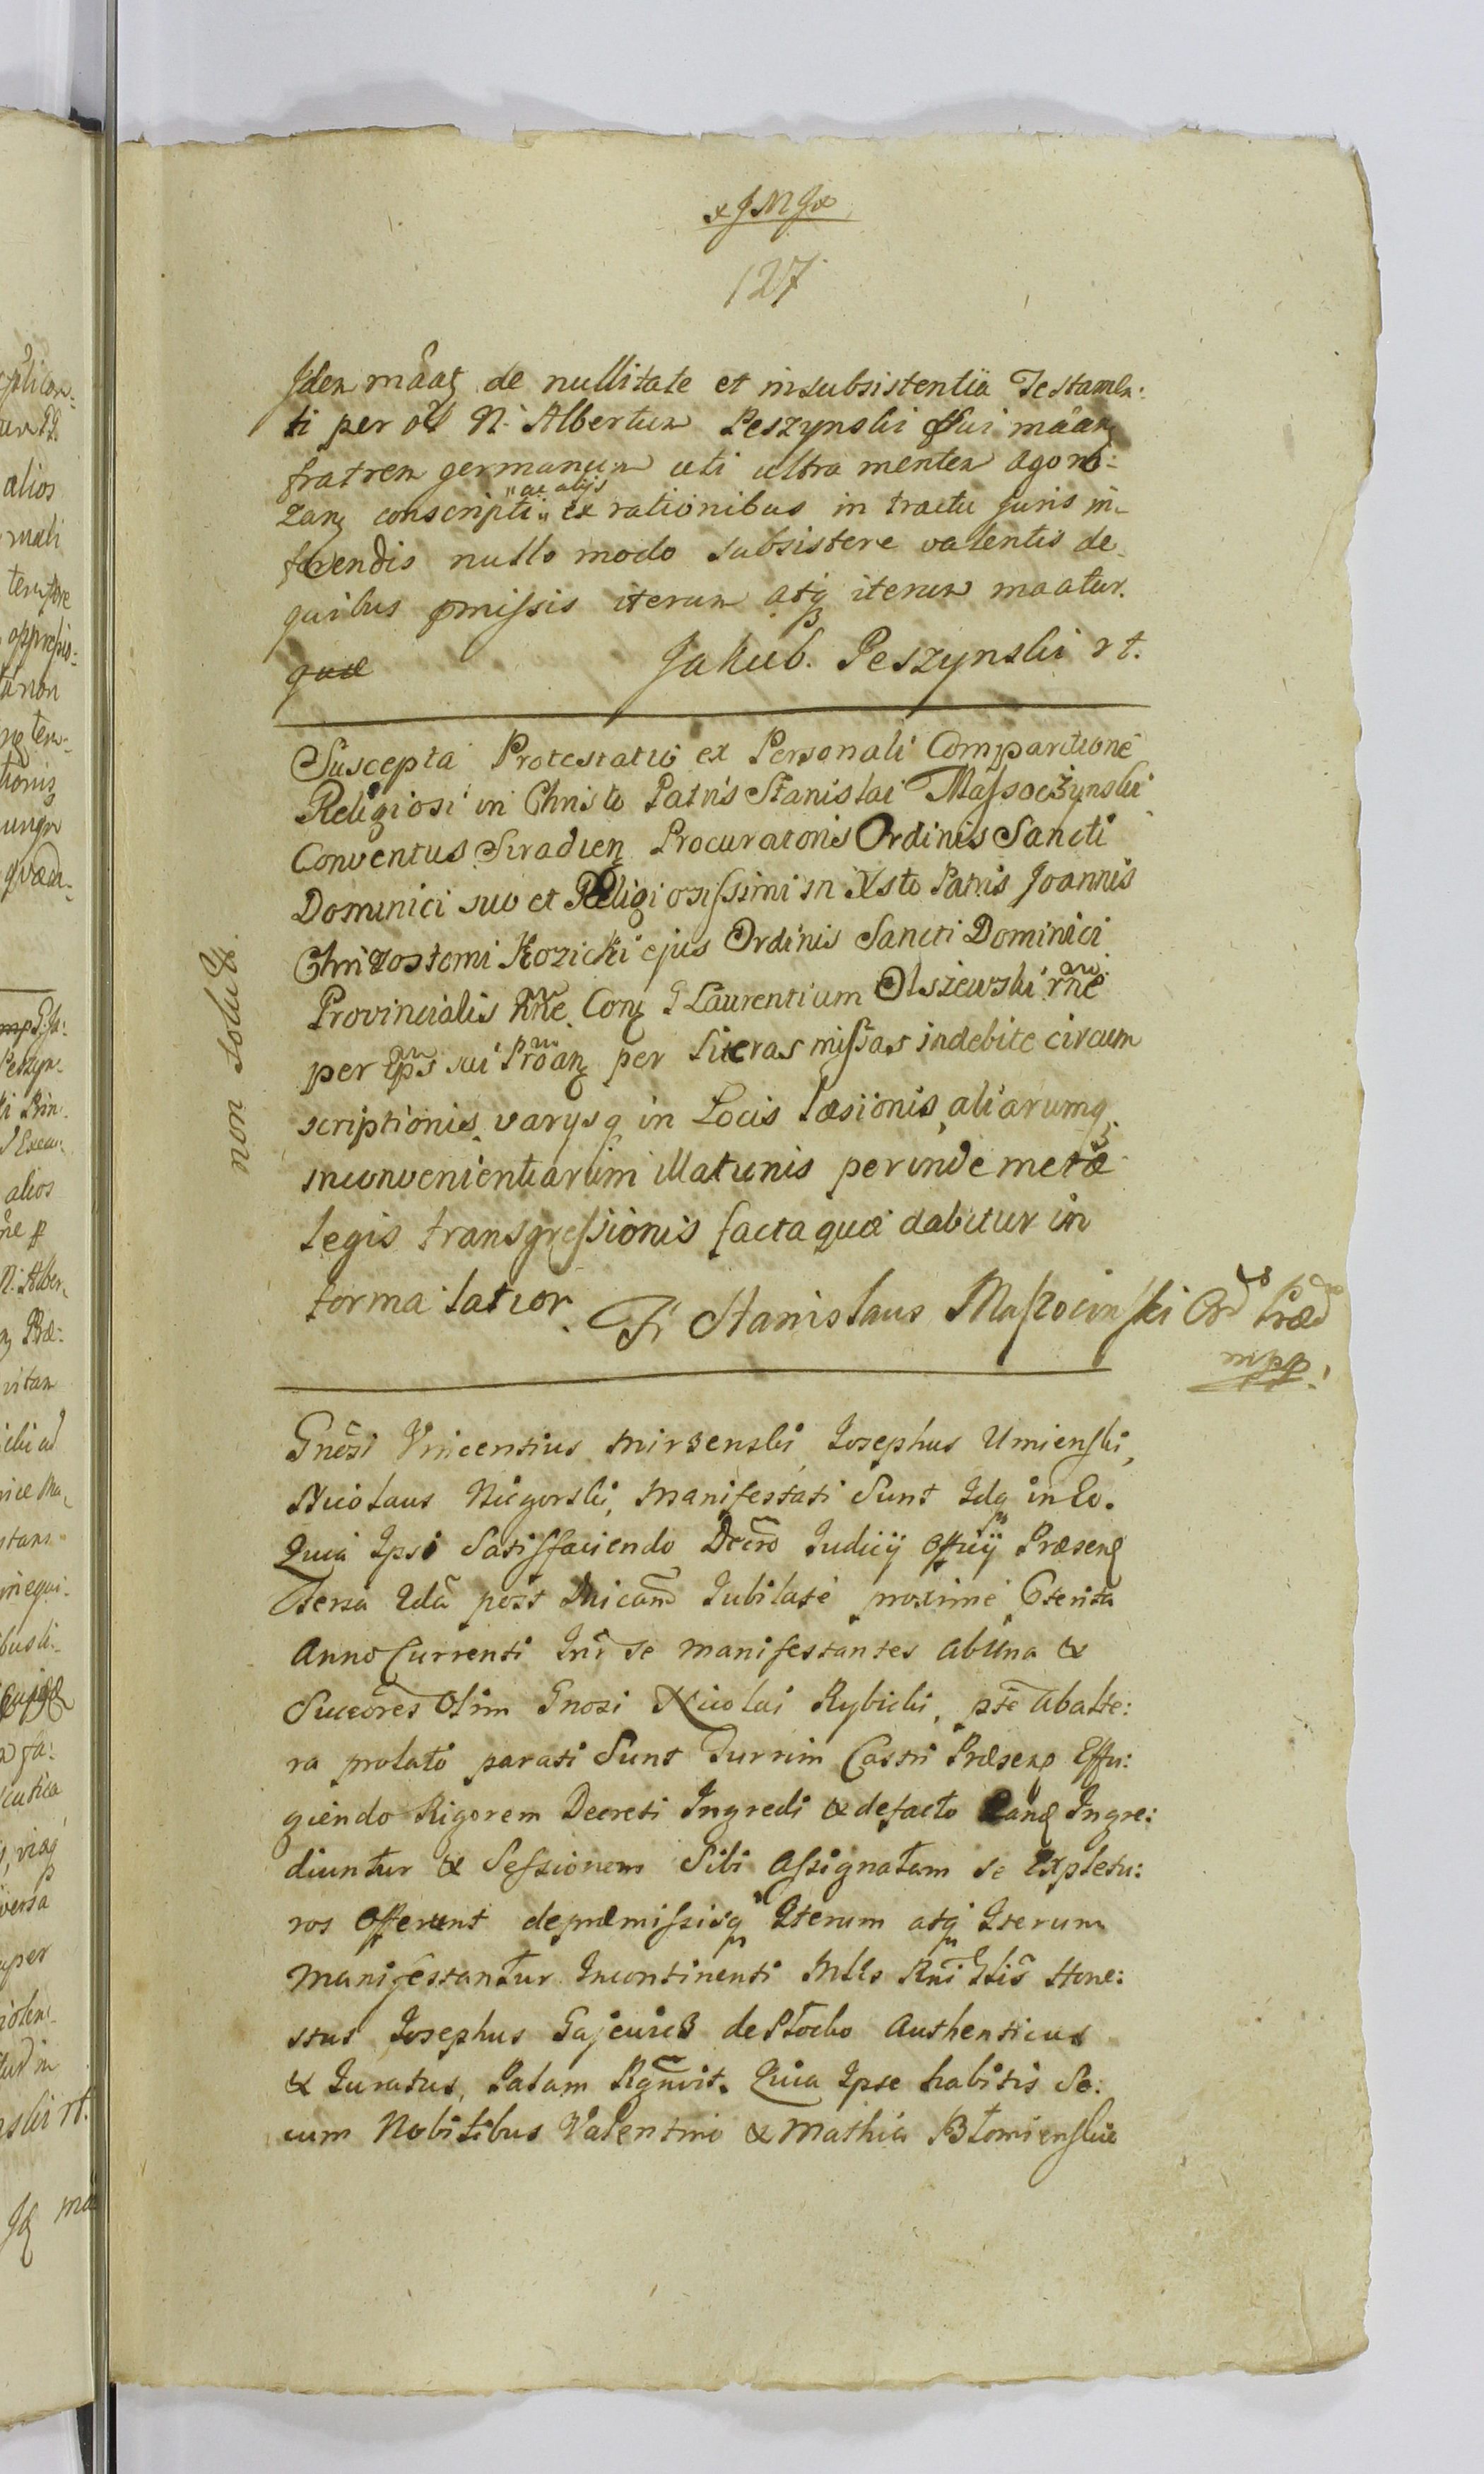 x J M J x
127
Idem māaț de nullitate et insubsistentia Testamen:
ti per ol N. Albertum Peszynski sui māanț
fratrem germanum uti ultra mentem agoni:
zanț conscripti "ac alijs" ex rationibus in tractu Juris in
ferendis nullo modo subsistere valentis de
quibus pmissis iterum atq iterum maatur.
quae Jakub. Peszynski rt.
Suscepta Protestatio ex Personali Comparitione
Religiosi in Christo Patris Stanislai Massoczynski
Conventus Siradien Procuratoris Ordinis Sancti
Dominici suo et Religiosissimi in Xsto Patris Joannis
Chrizostomi Kozicki ejus Ordinis Sancti Dominici
Provincialis Nne. Con G Laurentium Olszewski rne
per Eps sui Proan per Literas missas indebite circum
scriptionis varysq in Locis læsionis, aliarumq
inconvenientiarum illationis perinde metæ
legis transgressionis facta quæ dabitur in
forma latior. Fr Stanislaus Massocinski Ord Præd
mpp.
non solut.
Gnosi Vincentius Mirzenski Josephus Umienski,
Nicolaus Niegorski, Manifestati Sunt Idq in Eo.
Quia Ipsi Satisfaciendo Decro Iudicij Officij Præsenț
Feria 2da post Dnicam Jubilate proxime Pterita
Anno Currenti Inr se manifestantes ab Una &
Succores Olim Gnosi Nicolai Rybicki, pte ab alte:
ra prolato parati Sunt Turrim Castri Præsenț Effu:
giendo Rigorem Decreti Ingredi & defacto Eanđ Ingre:
diuntur & Sessionem Sibi Assignatam se Expletu:
ros Offerunt depræmissisq Iterum atq Iterum
Manifestantur Incontinenti Mtls Rni Gtis Hone:
stus Josephus Gajewicz de Stocko Authenticus
& Iuratus, Palam Rgnvit. Quia Ipse habitis Se:
cum Nobilibus Valentino & Mathia Błomienskie